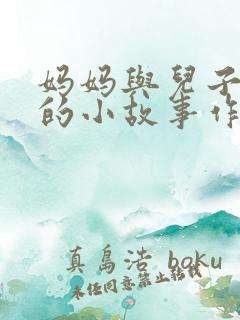 妈妈與兒子
的小故事作
真島浩 baku
未经同意禁止转载